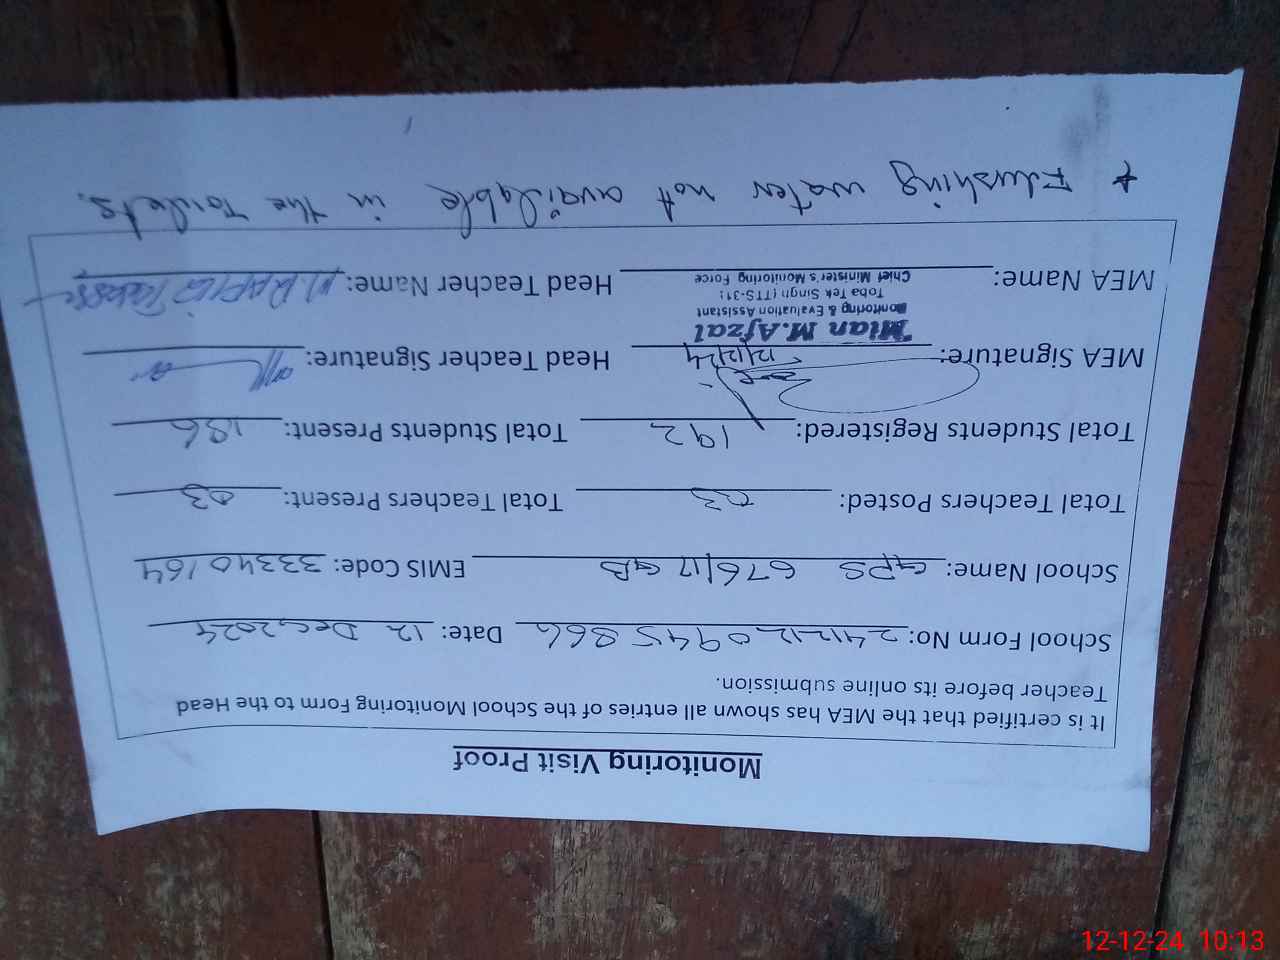 Monitoring Visit Proof
It is certified that the MEA has shown all entries of the School Monitoring Form to the Head
Teacher before its online submission.
School Form No: 2412120945866 Date: 12 Dec,2024
School Name: GPS 676/17 GB EMIS Code: 33340164
Total Teachers Posted: 03 Total Teachers Present: 03
Total Students Registered: 192 Total Students Present: 186
MEA Signature: 12/12/24 Head Teacher Signature:
Mian M.Afzal
Monitoring & Evaluation Assistant
Toba Tek Singh (TTS-31)
Chief Minister's Monitoring Force
MEA Name: Head Teacher Name:
* Flushing water not available in the Toilets.
12-12-24 10:13